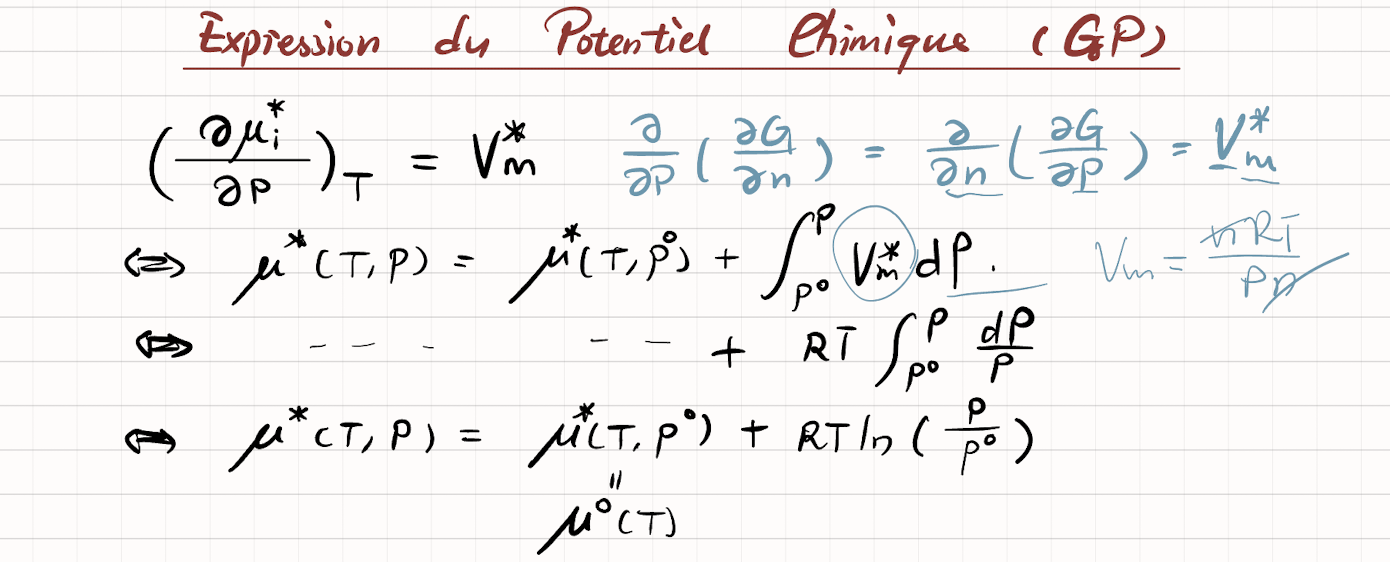 Expression du Potentiel Chimique (GP)
(∂μᵢ*/∂P)_T = Vₘ* ∂/∂P (∂G/∂n) = ∂/∂n (∂G/∂P) = Vₘ*
⇔ μ*(T, P) = μ*(T, P°) + ∫_{P°}^{P} Vₘ* dP. Vₘ = nRT/Pn
⇔ - - - - - + RT ∫_{P°}^{P} dP/P
⇔ μ*(T, P) = μ*(T, P°) + RT ln (P/P°)
=
μ°(T)